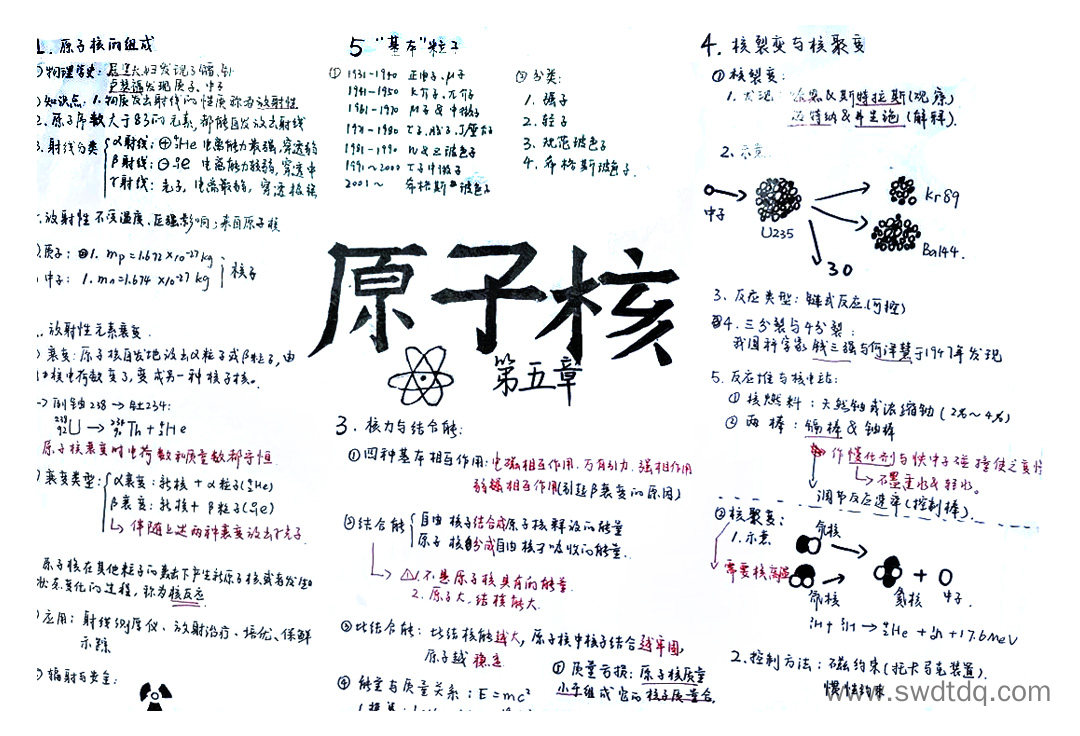 1. 原子核的组成
物理历史: 居里夫妇发现了镭、钋
更발现质子、中子
知识点: 1. 物质发出射线的性质称为放射性
2. 原子序数大于83的元素, 都能自发放出射线
3. 射线分类
α射线: ⊕ ⁴₂He 电离能力最强, 穿透弱
β射线: ⊖ ⁰₋₁e 电离能力较弱, 穿透中
γ射线: 光子, 电离最弱, 穿透极强
放射性不受温度、压强影响, 来自原子核
质子: 1. mp=1.672×10-27kg
中子: 1. mn=1.674×10-27kg
核子
放射性元素衰变.
衰变: 原子核自发地放出α粒子或β粒子, 由
核电荷数变了, 变成另一种核子核.
→ 则铀238→钍234:
²³⁸₉₂U → ²³⁴₉₀Th + ⁴₂He
原子核衰变时电荷数和质量数都守恒
衰变类型:
α衰变: 新核 + α粒子(⁴₂He)
β衰变: 新核 + β粒子(⁰₋₁e)
↳ 伴随上述两种衰变放出γ光子
原子核在其他粒子的轰击下产生新原子核或者发生
状态变化的过程, 称为核反应
应用: 射线测厚仪、放射治疗、培优、保鲜
示踪
辐射与安全:
5 "基本"粒子
① 1931-1940 正电子、μ子
1941-1950 K介子、π介子
1961-1970
1981-1990 W & Z 玻色子
1991~2000 τ子中微子
2001~ 希格斯玻色子
② 分类:
1. 强子
2. 轻子
3. 规范玻色子
4. 希格斯玻色子.
原子核
第五章
3. 核力与结合能:
①四种基本相互作用: 电磁相互作用. 万有引力. 强相互作用
弱相互作用(引起β衰变的原因)
②结合能
自由核子结合成原子核释放的能量
原子核分成自由核子吸收的能量.
↳ ⚠1. 不是原子核具有的能量
2. 原子大. 结核能大.
③比结合能: 比结核能越大, 原子核中核子结合越牢固,
原子越稳定
④ 能量与质量关系: E=mc²
① 质量亏损: 原子核质量
小于组成它的核子质量合,
4. 核裂变与核聚变
① 核裂变:
1. 发现: &斯特拉斯(观察)
迈特纳&弗里施 (解释).
2、示意.
中子
U235
Kr89
Ba144.
30
3. 反应类型: 链式反应.(可控)
4. 三分裂与4分裂:
我国科学家 钱三强与何泽慧于1947年发现
5. 反应堆与核电站:
① 核燃料: 天然铀或浓缩铀 (2%~4%)
② 两棒: 镉棒 & 铀棒
作慢化剂与快中子碰撞使之变慢
↳ 石墨重水&轻水.
调节反应速率(控制棒)
② 核聚变:
1. 示意
需要核高温
氘核
氚核
氦核
中子.
²₁H + ³₁H → ⁴₂He + ¹₀n + 17.6MeV
2. 控制方法: 磁约束(托卡马克装置).
惯性约束
www.swdtdq.com